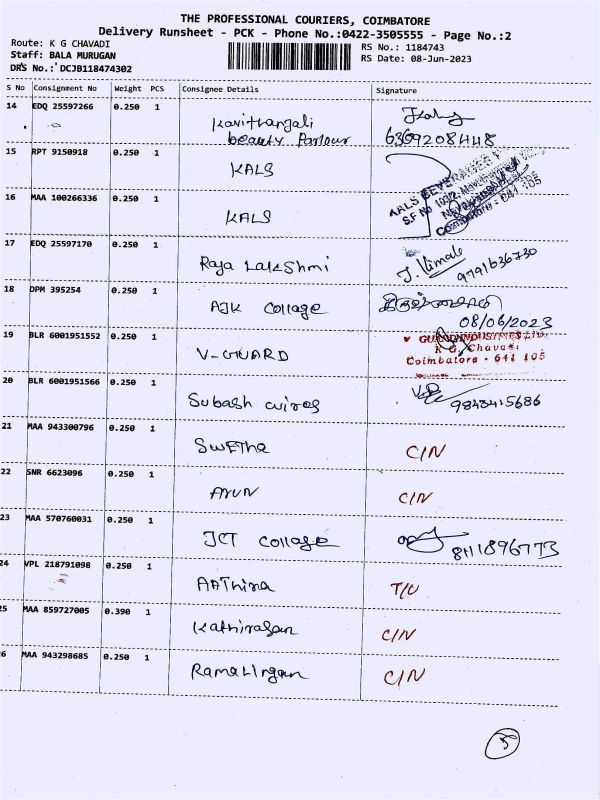 THE PROFESSIONAL COURIERS, COIMBATORE
Delivery Runsheet - PCK - Phone No.:0422-3505555 - Page No.:2
Route: K G CHAVADI
Staff: BALA MURUGAN
DRS No.: DCJB118474302
RS No.: 1184743
RS Date: 08-Jun-2023
S No Consignment No Weight PCS Consignee Details Signature
14 EDQ 25597266 0.250 1 Kavithanjali
beauty Parlour
6369208448
15 RPT 9150918 0.250 1 KALS
16 MAA 100266336 0.250 1 KALS
Coimbatore - 641 105
17 EDQ 25597170 0.250 1 Raja Lakshmi J. Vimale 9791636730
18 DPM 395254 0.250 1 AJK Collage
08/06/2023
19 BLR 6001951552 0.250 1 V-GUARD
K G Chavadi
Coimbatore - 641 105
20 BLR 6001951566 0.250 1 Subash 9843415686
21 MAA 943300796 0.250 1 Swetha C/N
22 SNR 6623096 0.250 1 Arun C/N
23 MAA 570760031 0.250 1 JCT Collage 8111896773
24 VPL 218791098 0.250 1 AAThira T/U
25 MAA 859727005 0.390 1 Kathirasan C/N
6 MAA 943298685 0.250 1 Ramalingan C/N